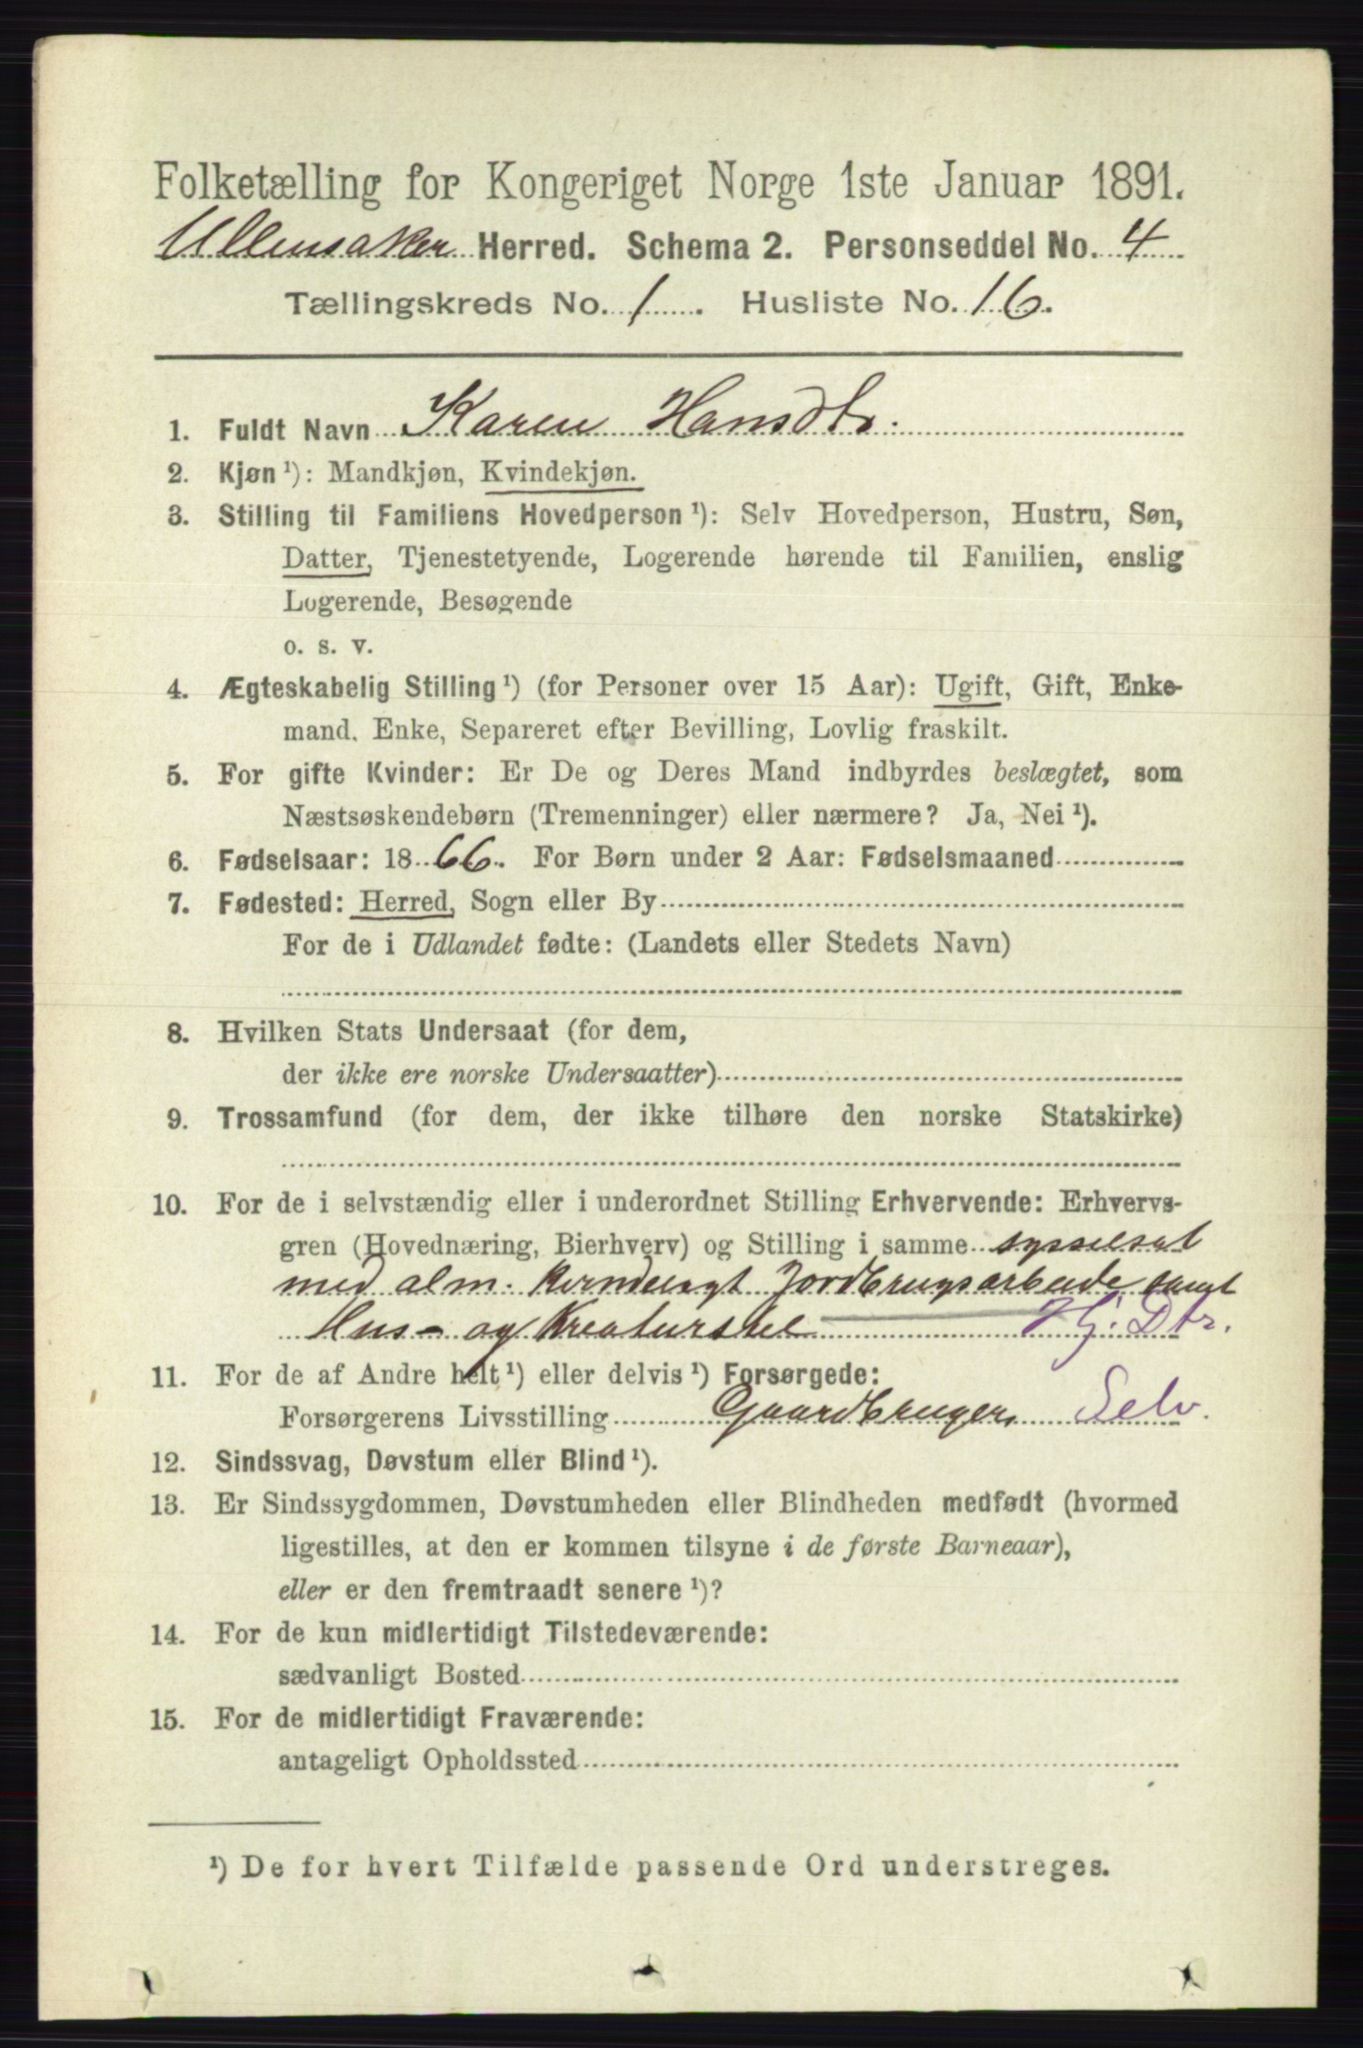 Folketælling for Kongeriget Norge 1ste Januar 1891.
Ullensaker Herred. Schema 2. Personseddel No. 4
Tællingskreds No. 1. Husliste No. 16.
1. Fuldt Navn Karen Hansdtr.
2. Kjøn ¹): Mandkjøn, Kvindekjøn.
3. Stilling til Familiens Hovedperson ¹): Selv Hovedperson, Hustru, Søn,
Datter, Tjenestetyende, Logerende hørende til Familien, enslig
Logerende, Besøgende
o. s. v.
4. Ægteskabelig Stilling ¹) (for Personer over 15 Aar): Ugift, Gift, Enke-
mand, Enke, Separeret efter Bevilling, Lovlig fraskilt.
5. For gifte Kvinder: Er De og Deres Mand indbyrdes beslægtet, som
Næstsøskendebørn (Tremenninger) eller nærmere? Ja, Nei ¹).
6. Fødselsaar: 1866. For Børn under 2 Aar: Fødselsmaaned
7. Fødested: Herred, Sogn eller By
For de i Udlandet fødte: (Landets eller Stedets Navn)
8. Hvilken Stats Undersaat (for dem,
der ikke ere norske Undersaatter)
9. Trossamfund (for dem, der ikke tilhøre den norske Statskirke)
10. For de i selvstændig eller i underordnet Stilling Erhvervende: Erhvervs-
gren (Hovednæring, Bierhverv) og Stilling i samme sysselsat
med alm. kvindeligt Jordbrugsarbeide samt
Hus- og Kreaturstel Hj. Dtr.
11. For de af Andre helt ¹) eller delvis ¹) Forsørgede:
Forsørgerens Livsstilling Gaardbruger, Selv.
12. Sindssvag, Døvstum eller Blind ¹).
13. Er Sindssygdommen, Døvstumheden eller Blindheden medfødt (hvormed
ligestilles, at den er kommen tilsyne i de første Barneaar),
eller er den fremtraadt senere ¹)?
14. For de kun midlertidigt Tilstedeværende:
sædvanligt Bosted
15. For de midlertidigt Fraværende:
antageligt Opholdssted
¹) De for hvert Tilfælde passende Ord understreges.